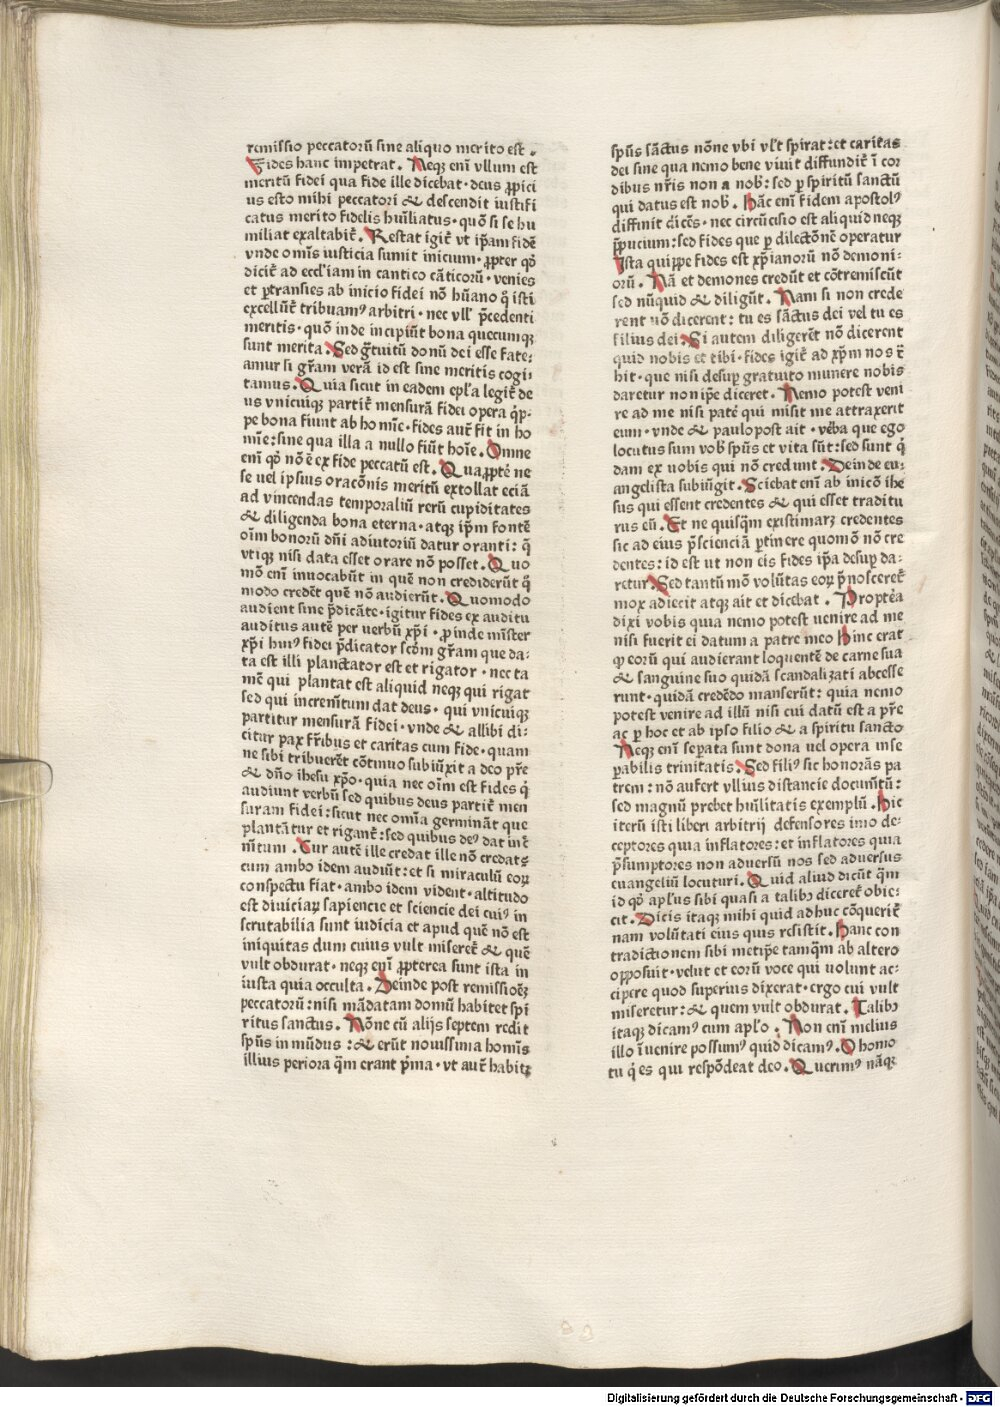 remissio peccatorū sine aliquo merito est .
Fides hanc impetrat . Neqꝫ enī vllum est
meritū fidei qua fide ille dicebat · deus ꝓpici
us esto mihi peccatori & descendit iustifi
catus merito fidelis hūiliatus · quōsi se hu
miliat exaltabit᷑ . Restat igit᷑ vt ip̄am fidē
vnde om̄is iusticia sumit inicium · ꝓpter qḋ
dicit᷑ ad eccl'iam in cantico cāticorū · venies
et ꝑtransies ab inicio fidei nō hūano q̇ isti
excellūt᷑ tribuamꝰ arbitri · nec vll' p̄cedenti
meritis · quō inde incipiūt bona quecumqꝫ
sunt merita . Sed g̃tuitū donū dei esse fate:
amur si gr̄am verā id est sine meritis cogi:
tamus . Quia sicut in eadem epl'a legit᷑ de
us vnicuiqꝫ partit᷑ mensurā fidei opera q̇ꝓ-
pe bona fiunt ab homīe · fides aut᷑ fit in ho
mīe: sine qua illa a nullo fiūt hoīe . Omne
enī qḋ nō ē ex fide peccatū est . Quaꝓpt᷑ ne
se uel ipsius oracōnis meritū extollat eciā
ad vincendas temporaliū rerū cupiditates
& diligenda bona eterna · atqꝫ ip̄m fontē
oīm bonorū dn̄i adiutoriū datur oranti: q̄
vtiqꝫ nisi data esset orare nō posset . Quo
mō enī inuocabūt in quē non crediderūt q̇
modo credēt quē nō audierūt . Quomodo
audient sine p̄dicāte · igitur fides ex auditu
auditus autē per uerbū xp̄i · proinde mīster
xp̄i huiꝰ fidei p̄dicator scdm̄ gr̄am que da:
ta est illi planctator est et rigator · nec ta
mē qui plantat est aliquid neqꝫ qui rigat
sed qui incrementum dat deus · qui vnicuiqꝫ
partitur mensurā fidei · vnde & allibi di:
citur pax fr̄ibus et caritas cum fide · quam
ne sibi tribuerēt cōtinuo subiūxit a deo p̄re
& dn̄o ihesu xp̄o · quia nec oīm est fides q̇
audiunt verbū sed quibus deus partit᷑ men
suram fidei: sicut nec om̄ia germināt que
plantātur et rigant᷑: sed quibus deꝰ dat in᷑
mītum . Cur autē ille credat ille nō credat:
cum ambo idem audiūt: et si miraculū eoꝝ
conspectu fiat · ambo idem vident · altitudo
est diuiciaꝝ sapiencie et sciencie dei cuiꝰ in
scrutabilia sunt iudicia et apud quē nō est
iniquitas dum cuius vult miseret᷑ & quē
vult obdurat · neqꝫ enī ꝓpterea sunt ista in
iusta quia occulta . Deinde post remissiōeꝫ
peccatorū: nisi mādatam domū habitet spi
ritus sanctus . Nōne cū alijs septem redit
spūs in mūdus : & erūt nouissima homīs
illius periora q̄m erant p̄ma · vt aut᷑ habitꝫ
spūs sāctus nōne vbi vl't spirat: et caritas
dei sine qua nemo bene viuit diffundit᷑ ī cor
dibus nr̄is non a nob̄: sed ꝑ spiritū sanctū
qui datus est nob̄ . Hāc enī fidem apostolꝰ
diffinit dicēs · nec circūcisio est aliquid neqꝫ
p̄pucium: sed fides que ꝑ dilectōnē operatur
Ista quippe fides est xp̄ianorū nō demoni:
orū . Nā et demones credūt et cōtremiscūt
sed nūquid & diligūt . Nam si non crede
rent nō dicerent: tu es sāctus dei vel tu es
filius dei . Si autem diligerēt nō dicerent
quid nobis et tibi · fides igit᷑ ad xp̄m nos t᷑
hit · que nisi desuꝑ gratuito munere nobis
daretur non ip̄e diceret . Nemo potest veni
re ad me nisi pater qui misit me attraxerit
eum · vnde & paulo post ait · v᷑ba que ego
locutus sum vob̄ spūs et vita sūt: sed sunt q̇
dam ex uobis qui nō credunt . Deinde eu:
angelista subiūgit . Sciebat enī ab inicō ihe
sus qui essent credentes & qui esset traditu
rus eū . Et ne quisq̄m existimarꝫ credentes
sic ad eius p̄scienciā ꝑtinere quomō nō cre
dentes: id est ut non eis fides ip̄a desuꝑ da:
retur . Sed tantū mō volūtas eoꝝ p̄nosceret᷑
mox adiecit atqꝫ ait et dicebat . Propt᷑ea
dixi vobis quia nemo potest uenire ad me
nisi fuerit ei datum a patre meo Hinc erat
ꝙ eorū qui audierant loquentē de carne sua
& sanguine suo quidā scandalizati abcesse
runt · quidā credēdo manserūt: quia nemo
potest venire ad illū nisi cui datū est a p̄re
ac ꝑ hoc et ab ipso filio & a spiritu sancto
Neqꝫ enī seꝑata sunt dona uel opera inse
ꝑabilis trinitatis . Sed filiꝰ sic honorās pa
trem: nō aufert vllius distancie documētū:
sed magnū prebet hūilitatis exemplū . Hic
iterū isti liberi arbitrij defensores imo de:
ceptores quia inflatores: et inflatores quia
p̄sumptores non aduersū nos sed aduersus
euangeliū locuturi . Quid aliud dicūt q̄m
id qḋ apl'us sibi quasi a talibꝫ diceret᷑ obie:
cit . Dicis itaqꝫ mihi quid adhuc cōquerit᷑
nam volūtati eius quis resistit . Hanc con
tradictionem sibi metip̄e tamq̄m ab altero
opposuit · velut et eorū voce qui uolunt ac:
cipere quod superius dixerat · ergo cui vult
miseretur: & quem vult obdurat . Talibꝫ
itaqꝫ dicamꝰ cum apl'o . Non enī melius
illo īuenire possumꝰ quid dicamꝰ . O homo
tu q̇ es qui respōdeat deo . Querimꝰ nāqꝫ
Digitalisierung gefördert durch die Deutsche Forschungsgemeinschaft - DFG